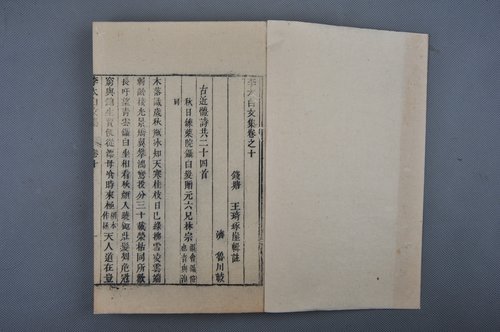 李太白文集卷之十
錢塘 王琦琢崖輯註
濟 魯川較
古近體詩共二十四首
秋日鍊藥院鑷白髮贈元六兄林宗
同
木落識歲秋瓶冰知天寒桂枝日已綠拂雪凌雲端
弱齡接光景矯翼攀鴻鸞投分三十載榮枯同所歡
長吁望青雲鑷白坐相看秋顏入曉鏡壯髮凋危冠
窮與鮑生賈飢從漂母飡時來極繆本作拯天人道在豈